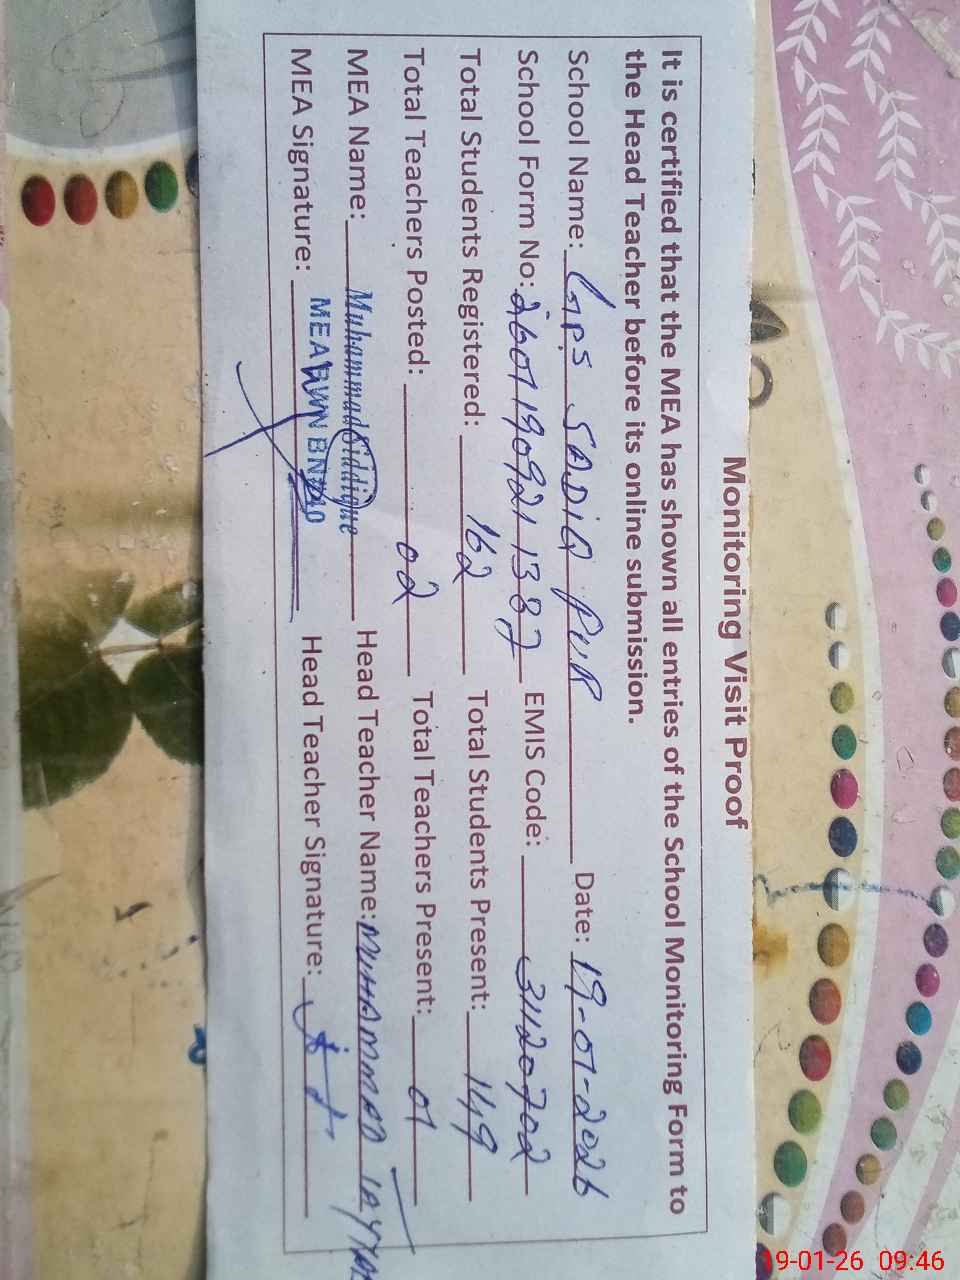 Monitoring Visit Proof
It is certified that the MEA has shown all entries of the School Monitoring Form to
the Head Teacher before its online submission.
School Name: GPS SADIQ PUR Date: 19-01-2026
School Form No: 2601190921 1387 EMIS Code: 31120702
Total Students Registered: 162 Total Students Present: 149
Total Teachers Posted: 02 Total Teachers Present: 01
MEA Name: Muhammad Siddique Head Teacher Name: MUHAMMAD
MEA Signature: MEA Head Teacher Signature:
19-01-26 09:46